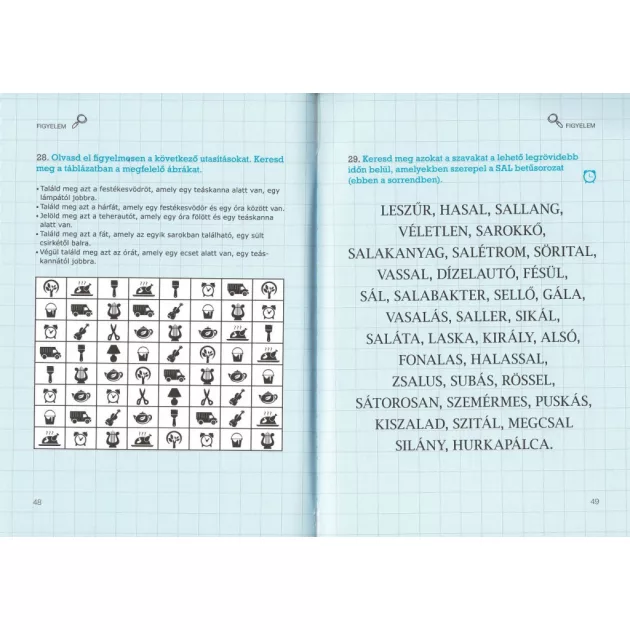 FIGYELEM
28. Olvasd el figyelmesen a következő utasításokat. Keresd
meg a táblázatban a megfelelő ábrákat.
• Találd meg azt a festékesvödröt, amely egy teáskanna alatt van, egy
lámpától jobbra.
• Találd meg azt a hárfát, amely egy festékesvödör és egy óra között van.
• Jelöld meg a teherautót, amely egy óra fölött és egy teáskanna
alatt van.
• Találd meg azt a fát, amely az egyik sarokban található, egy sült
csirkétől balra.
• Végül találd meg azt az órát, amely egy ecset alatt van, egy teás-
kannától jobbra.
48
FIGYELEM
29. Keresd meg azokat a szavakat a lehető legrövidebb
időn belül, amelyekben szerepel a SAL betűsorozat
(ebben a sorrendben).
LESZŰR, HASAL, SALLANG,
VÉLETLEN, SAROKKŐ,
SALAKANYAG, SALÉTROM, SÖRITAL,
VASSAL, DÍZELAUTÓ, FÉSÜL,
SÁL, SALABAKTER, SELLŐ, GÁLA,
VASALÁS, SALLER, SIKÁL,
SALÁTA, LASKA, KIRÁLY, ALSÓ,
FONALAS, HALASSAL,
ZSALUS, SUBÁS, RÖSSEL,
SÁTOROSAN, SZEMÉRMES, PUSKÁS,
KISZALAD, SZITÁL, MEGCSAL
SILÁNY, HURKAPÁLCA.
49